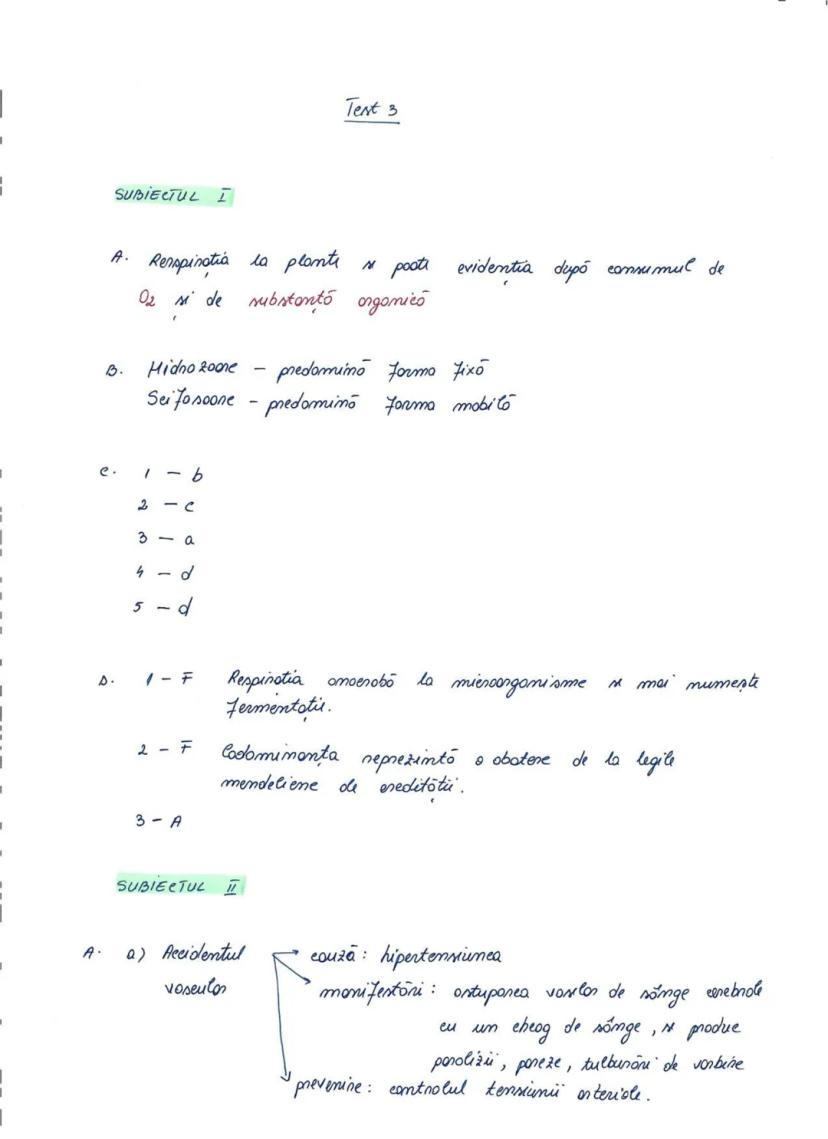 Test 3
SUBIECTUL I
A. Respirația la plante se poate evidenția după consumul de
O2 și de substanță organică
B. Hidrozoare – predomină forma fixă
Scifozoare – predomină forma mobilă
C. 1 – b
2 – c
3 – a
4 – d
5 – d
D. 1 – F Respirația anaerobă la microorganisme se mai numește
fermentație.
2 – F Codominanța reprezintă o abatere de la legile
mendeliene ale eredității.
3 – A
SUBIECTUL II
A. a) Accidentul → cauză: hipertensiunea
vascular manifestări: astuparea vaselor de sânge cerebrale
cu un cheag de sânge, se produc
paralizii, pareze, tulburări de vorbire
prevenire: controlul tensiunii arteriale.